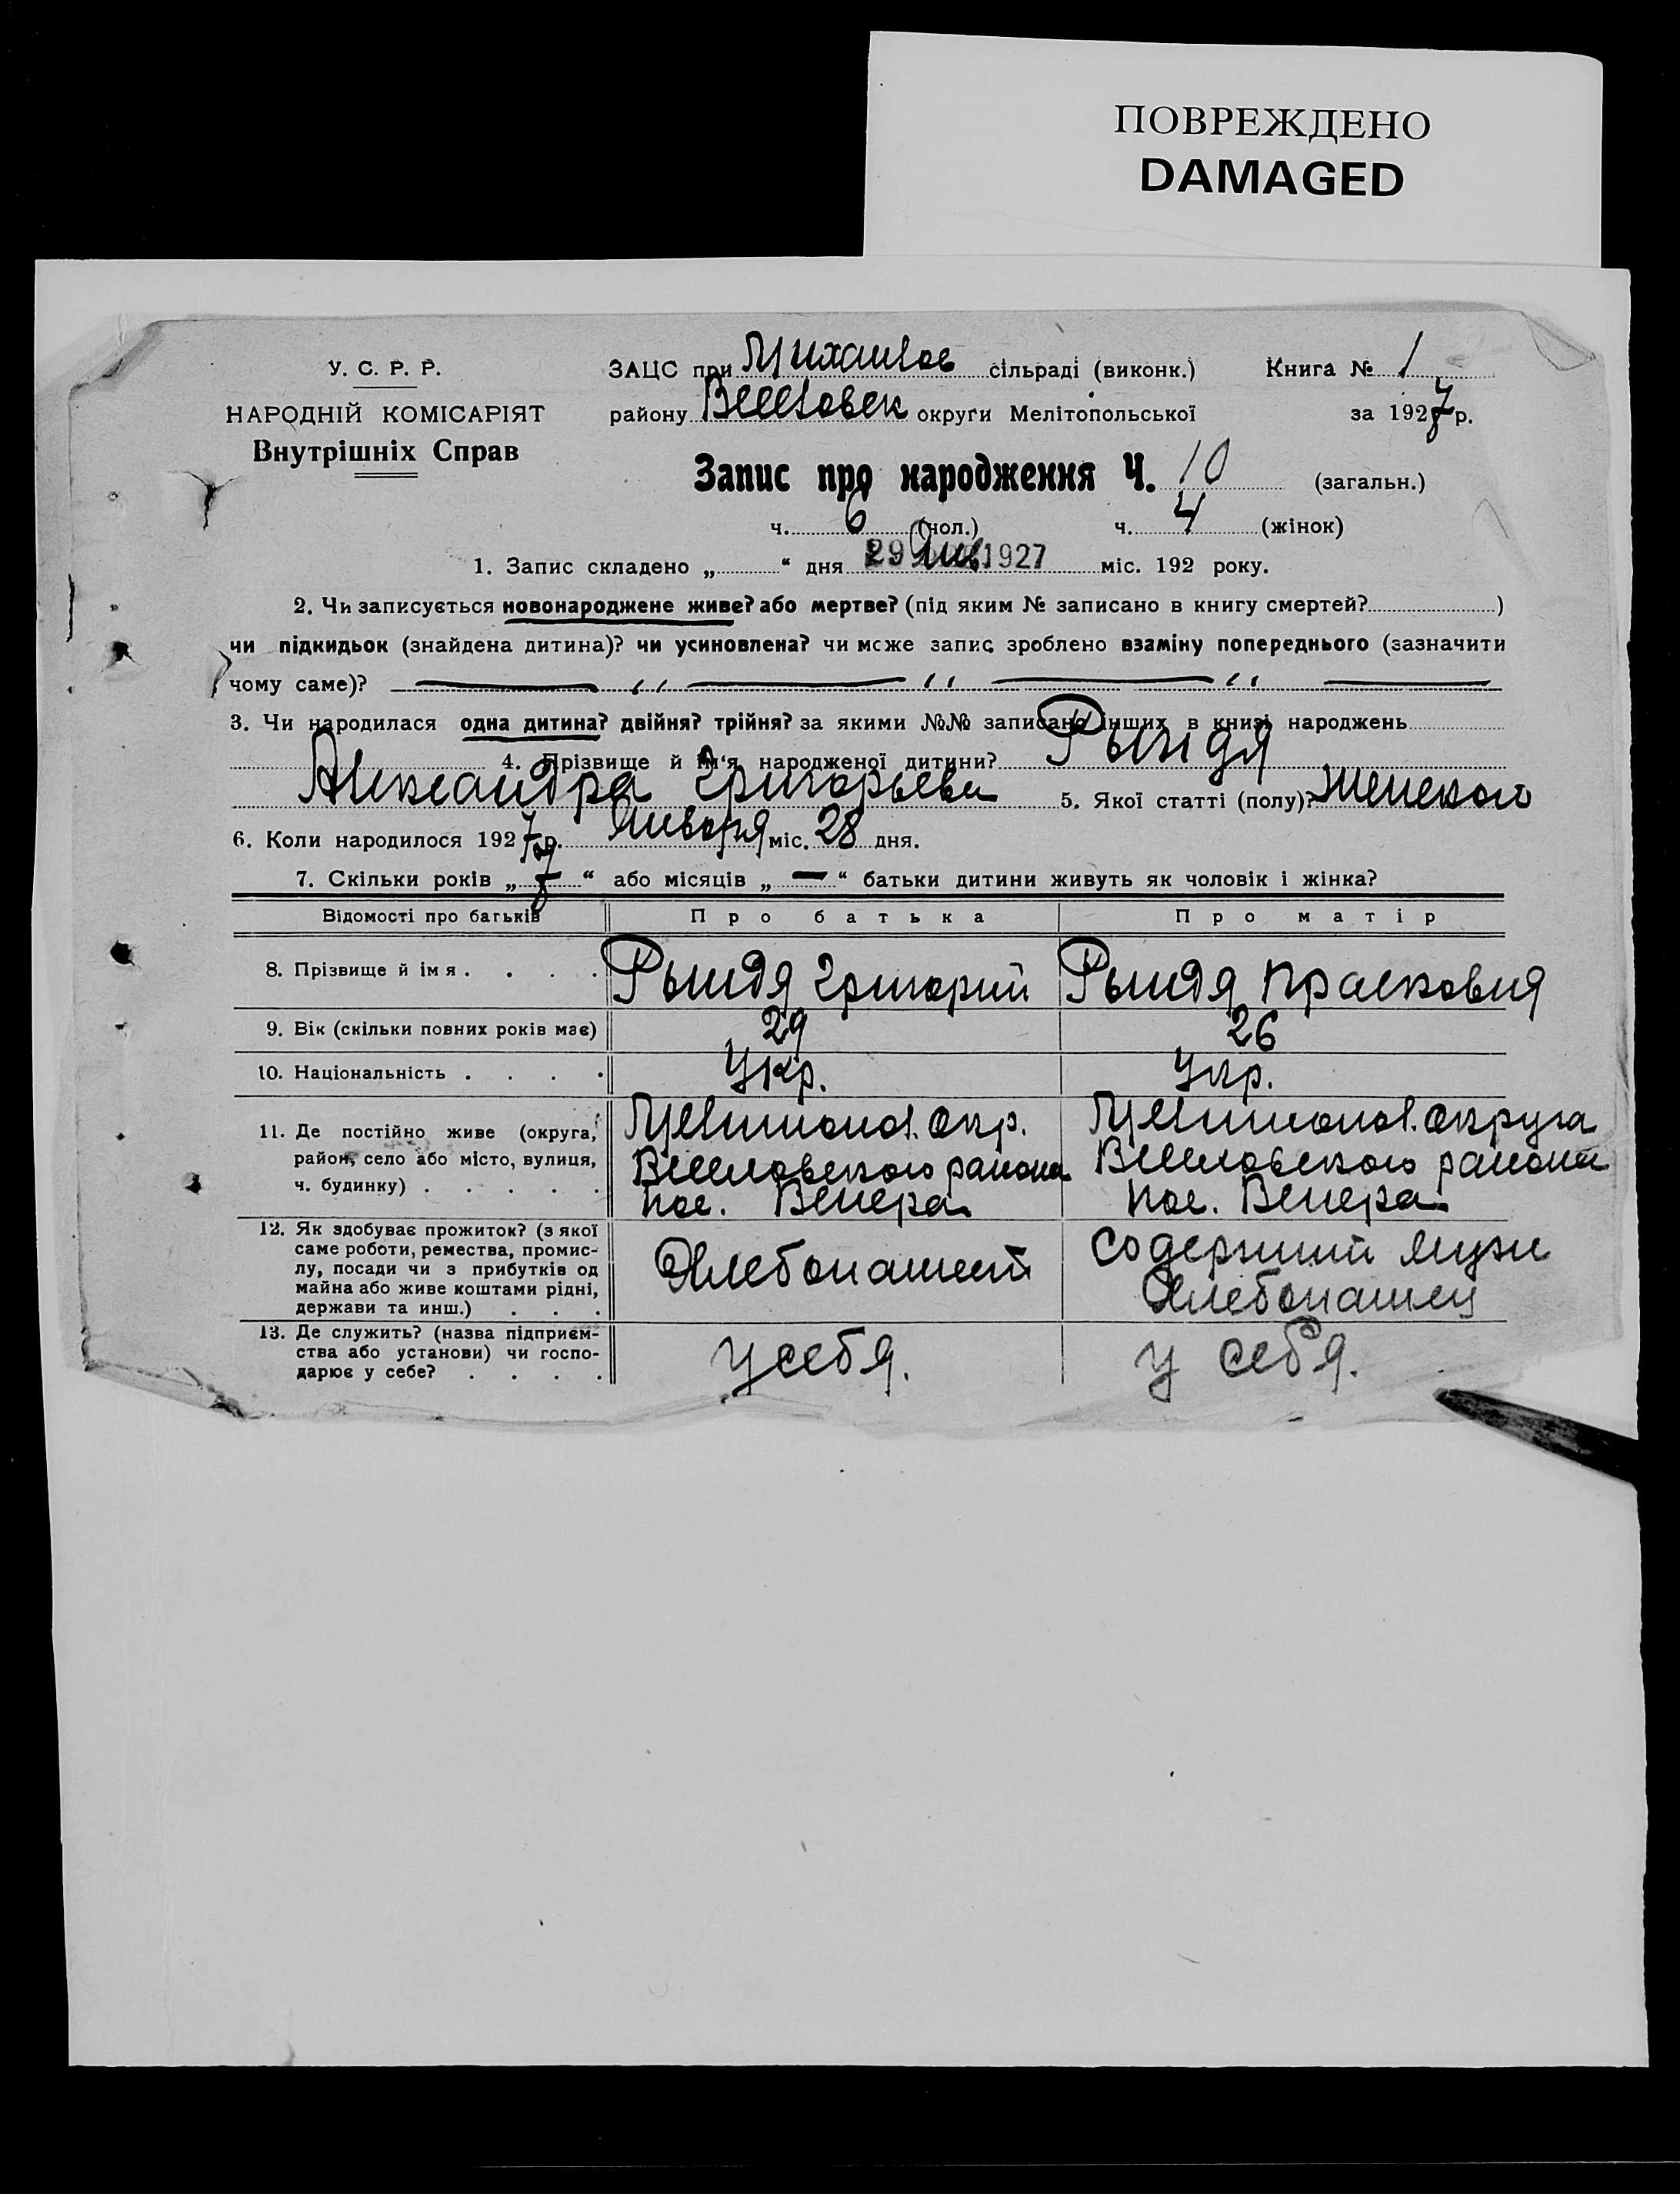 ПОВРЕЖДЕНО
DAMAGED
У. С. Р. Р.
НАРОДНІЙ КОМІСАРІЯТ
Внутрішніх Справ
ЗАЦС при Михайлов сільраді (виконк.) Книга № 1
району Веселовск округи Мелітопольської за 1927 р.
Запис про народження Ч. 10 (загальн.)
ч. 6 (чол.) ч. 4 (жінок)
1. Запис складено „ “ дня 29 Янв. 1927 міс. 192 року.
2. Чи записується новонароджене живе? або мертве? (під яким № записано в книгу смертей? )
чи підкидьок (знайдена дитина)? чи усиновлена? чи може запис зроблено взаміну попереднього (зазначити
чому саме)? — ,, — ,, — ,, —
3. Чи народилася одна дитина? двійня? трійня? за якими №№ записано інших в книзі народжень
4. Прізвище й ім‘я народженої дитини? Рындя
Александра Григорьевн 5. Якої статті (полу)? Женского
6. Коли народилося 1927 р. Января міс. 28 дня.
7. Скільки років „ “ або місяців „ — “ батьки дитини живуть як чоловік і жінка?
Відомості про батьків Про батька Про матір
8. Прізвище й імя . . . . Рындя Григорий Рындя Прасковия
9. Вік (скільки повних років має) 29 26
10. Національність . . . . Укр. Укр.
11. Де постійно живе (округа,
район, село або місто, вулиця,
ч. будинку) . . . . .
Мелитопол. Окр.
Веселовского района
пос. Венера
Мелитопол. Округа
Веселовского района
пос. Венера
12. Як здобуває прожиток? (з якої
саме роботи, ремества, промис-
лу, посади чи з прибутків од
майна або живе коштами рідні,
держави та инш.) . . .
Хлебопашест
Содержит муж
Хлебопашец
13. Де служить? (назва підприєм-
ства або установи) чи госпо-
дарює у себе? . . . .
у себя.
у себя.